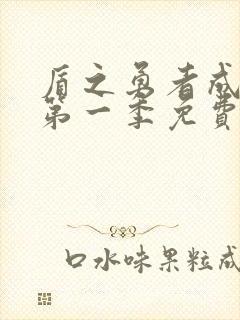 盾之勇者成
第一季免費
口水味果粒成